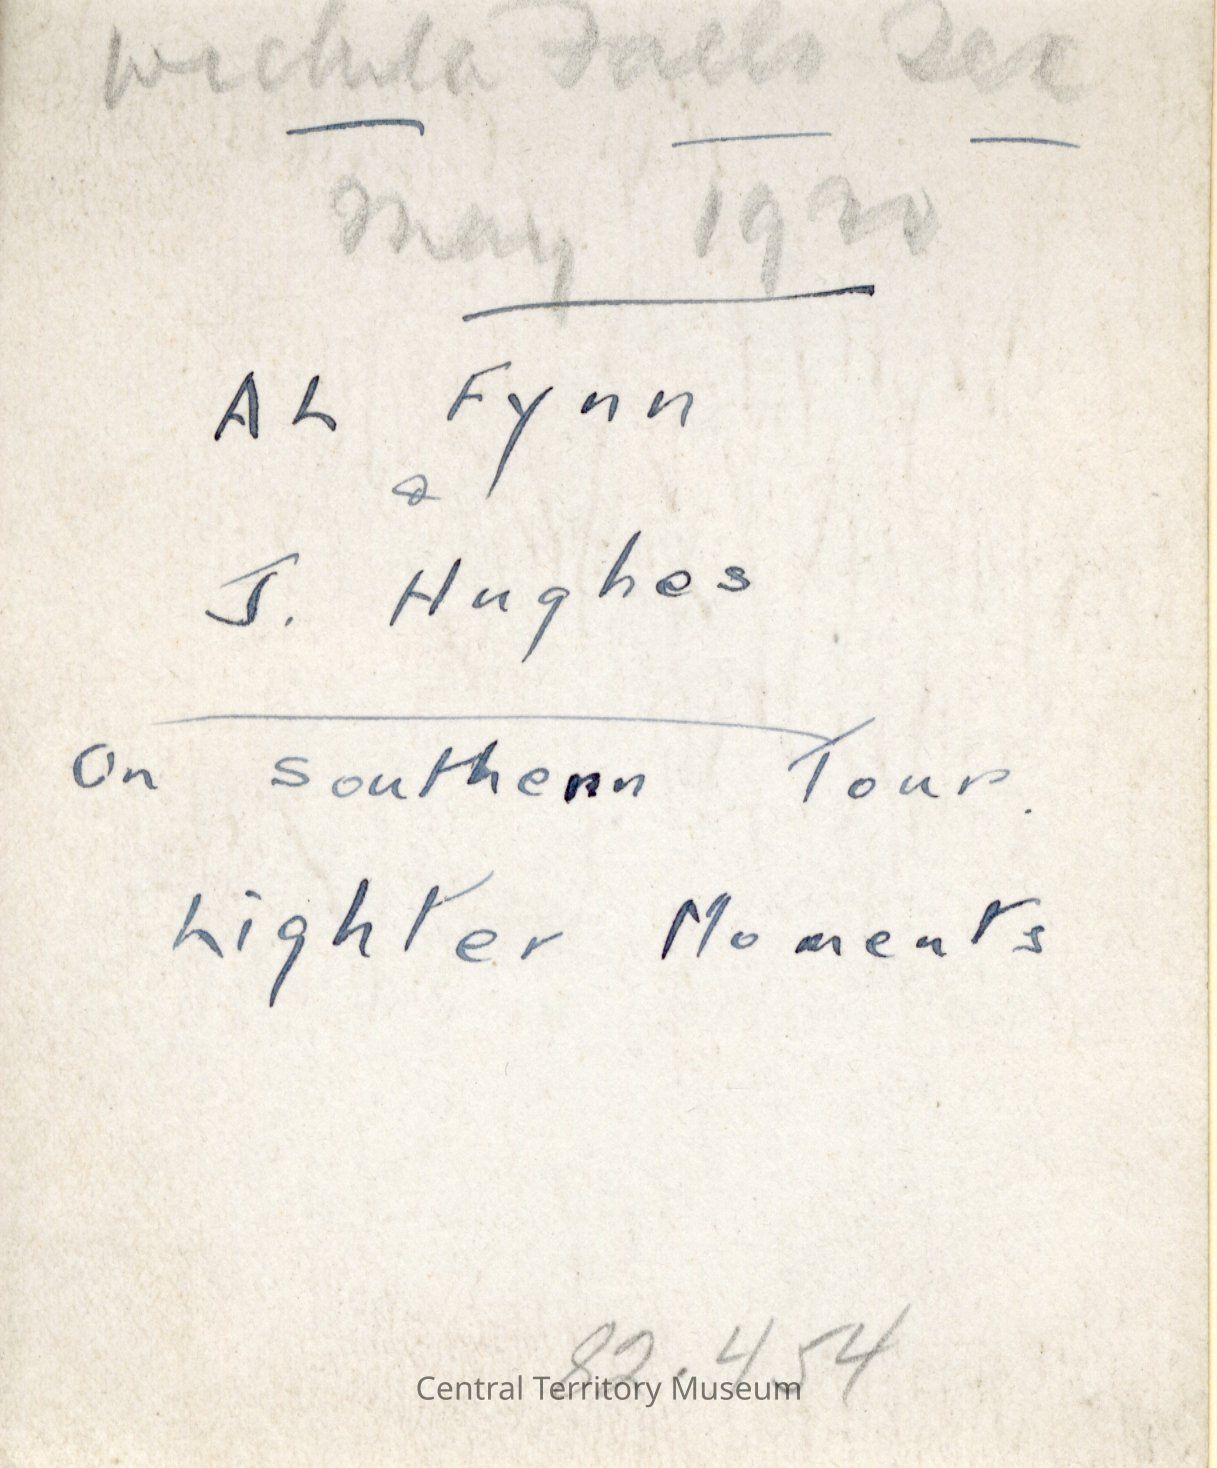 Wichita Falls Tex
May 1920
AL Fynn
&
J. Hughes
On Southern Tour.
Lighter Moments
82.454
Central Territory Museum